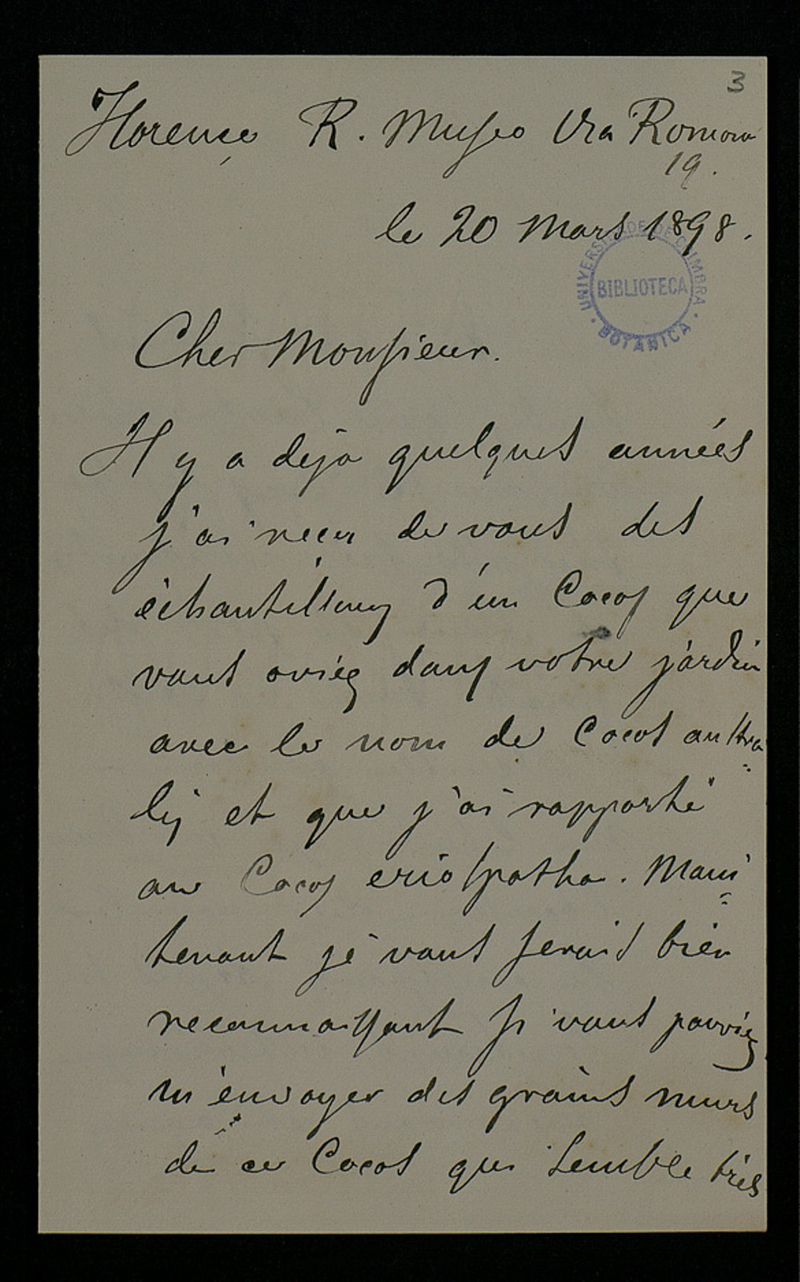 3
Florence R. Museo Via Romana
19.
le 20 Mars 1898.
UNIVERSIDADE DE COIMBRA
BIBLIOTECA
BOTANICA
Cher Monsieur.
Il y a deja quelques années
j'ai reçu de vous des
échantillons d'un Cocos que
vous aviez dans votre jardin
avec le nom de Cocos austra=
lis et que j'ai rapporté
au Cocos eriospatha. Main=
tenant je vous serais bien
reconnaissant si vous pouviez
m'envoyer des grains murs
de ce Cocos qui semble très